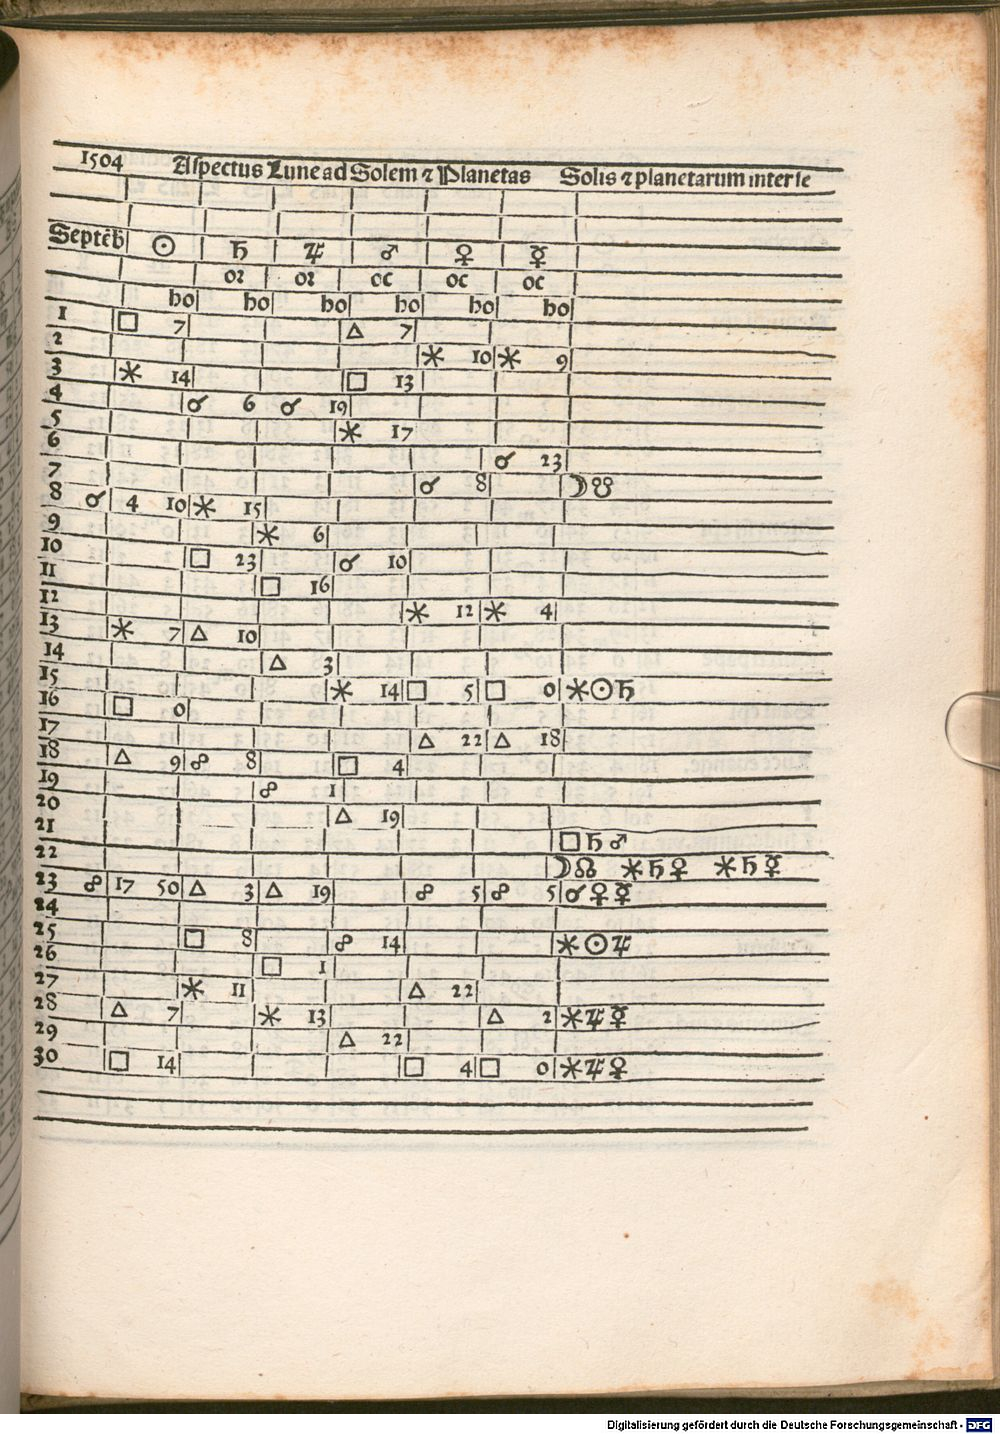 1504 Aspectus Lune ad Solem ⁊ Planetas Solis ⁊ planetarum inter se
Septēb ☉ ♄ ♃ ♂ ♀ ☿
oꝛ oꝛ oc oc oc
ho ho ho ho ho ho
1 □ 7 △ 7
2 ⚹ 10 ⚹ 9
3 ⚹ 14 □ 13
4 ☌ 6 ☌ 19
5 ⚹ 17
6 ☌ 23
7 ☌ 8 ☽ ☋
8 ☌ 4 10 ⚹ 15
9 ⚹ 6
10 □ 23 ☌ 10
11 □ 16
12 ⚹ 12 ⚹ 4
13 ⚹ 7 △ 10
14 △ 3
15 ⚹ 14 □ 5 □ 0 ⚹ ☉ ♄
16 □ 0
17 △ 22 △ 18
18 △ 9 ☍ 8 □ 4
19 ☍ 1
20 △ 19
21 □ ♄ ♂
22 ☽ ☊ ⚹ ♄ ♀ ⚹ ♄ ☿
23 ☍ 17 50 △ 3 △ 19 ☍ 5 ☍ 5 ☌ ♀ ☿
24
25 □ 8 ☍ 14 ⚹ ☉ ♃
26 □ 1
27 ⚹ 11 △ 22
28 △ 7 ⚹ 13 △ 2 ⚹ ♃ ☿
29 △ 22
30 □ 14 □ 4 □ 0 ⚹ ♃ ♀
Digitalisierung gefördert durch die Deutsche Forschungsgemeinschaft - DFG